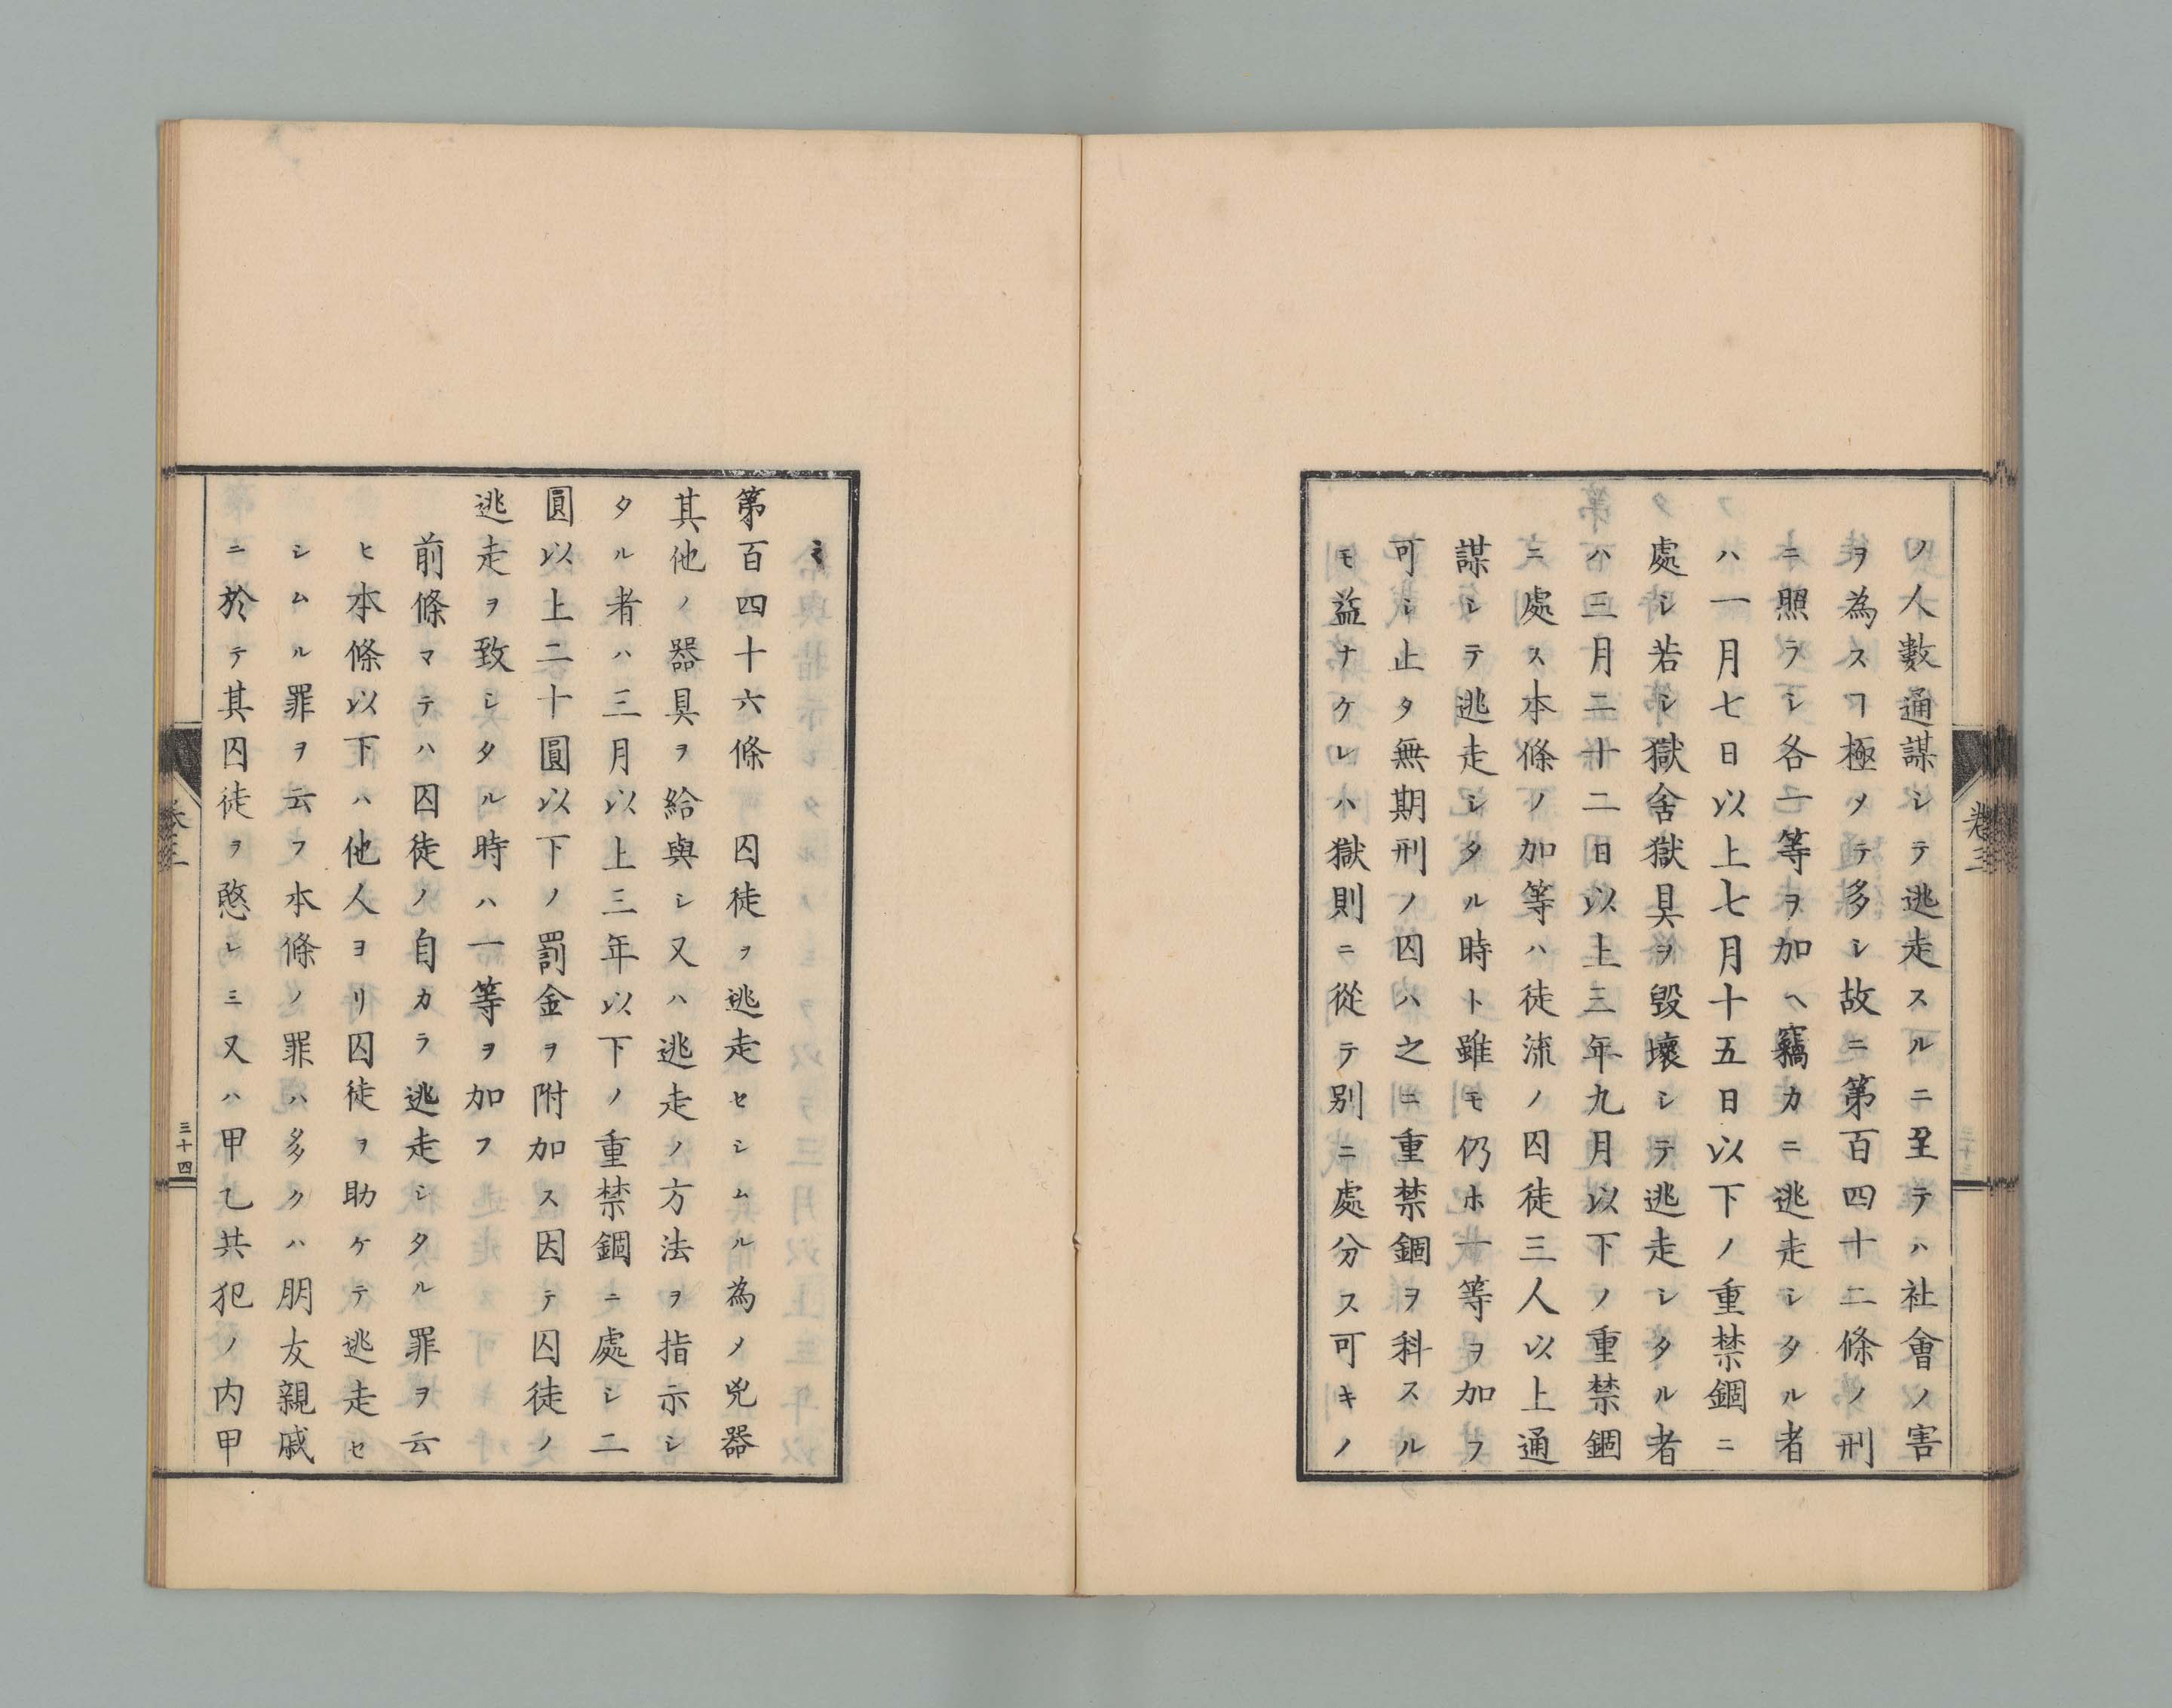 ノ人數通謀シテ逃走スルニ至テハ社會ノ害
ヲ為スヿ極メテ多シ故ニ第百四十二條ノ刑
ニ照ラシ各一等ヲ加ヘ竊カニ逃走シタル者
ハ一月七日以上七月十五日以下ノ重禁錮ニ
處シ若シ獄舍獄具ヲ毀壞シテ逃走シタル者
ハ三月二十二日以上三年九月以下ノ重禁錮
ニ處ス本條ノ加等ハ徒流ノ囚徒三人以上通
謀シテ逃走シタル時ト雖モ仍ホ一等ヲ加フ
可シ止タ無期刑ノ囚ハ之ニ重禁錮ヲ科スル
モ益ナケレハ獄則ニ從テ別ニ處分ス可キノ
卷三
ミ
第百四十六條 囚徒ヲ逃走セシムル為ノ兇器
其他ノ器具ヲ給與シ又ハ逃走ノ方法ヲ指示シ
タル者ハ三月以上三年以下ノ重禁錮ニ處シ二
圓以上二十圓以下ノ罰金ヲ附加ス因テ囚徒ノ
逃走ヲ致シタル時ハ一等ヲ加フ
前條マテハ囚徒ノ自カラ逃走シタル罪ヲ云
ヒ本條以下ハ他人ヨリ囚徒ヲ助ケテ逃走セ
シムル罪ヲ云フ本條ノ罪ハ多クハ朋友親戚
ニ於テ其囚徒ヲ憨レミ又ハ甲乙共犯ノ内甲
卷三
三十四